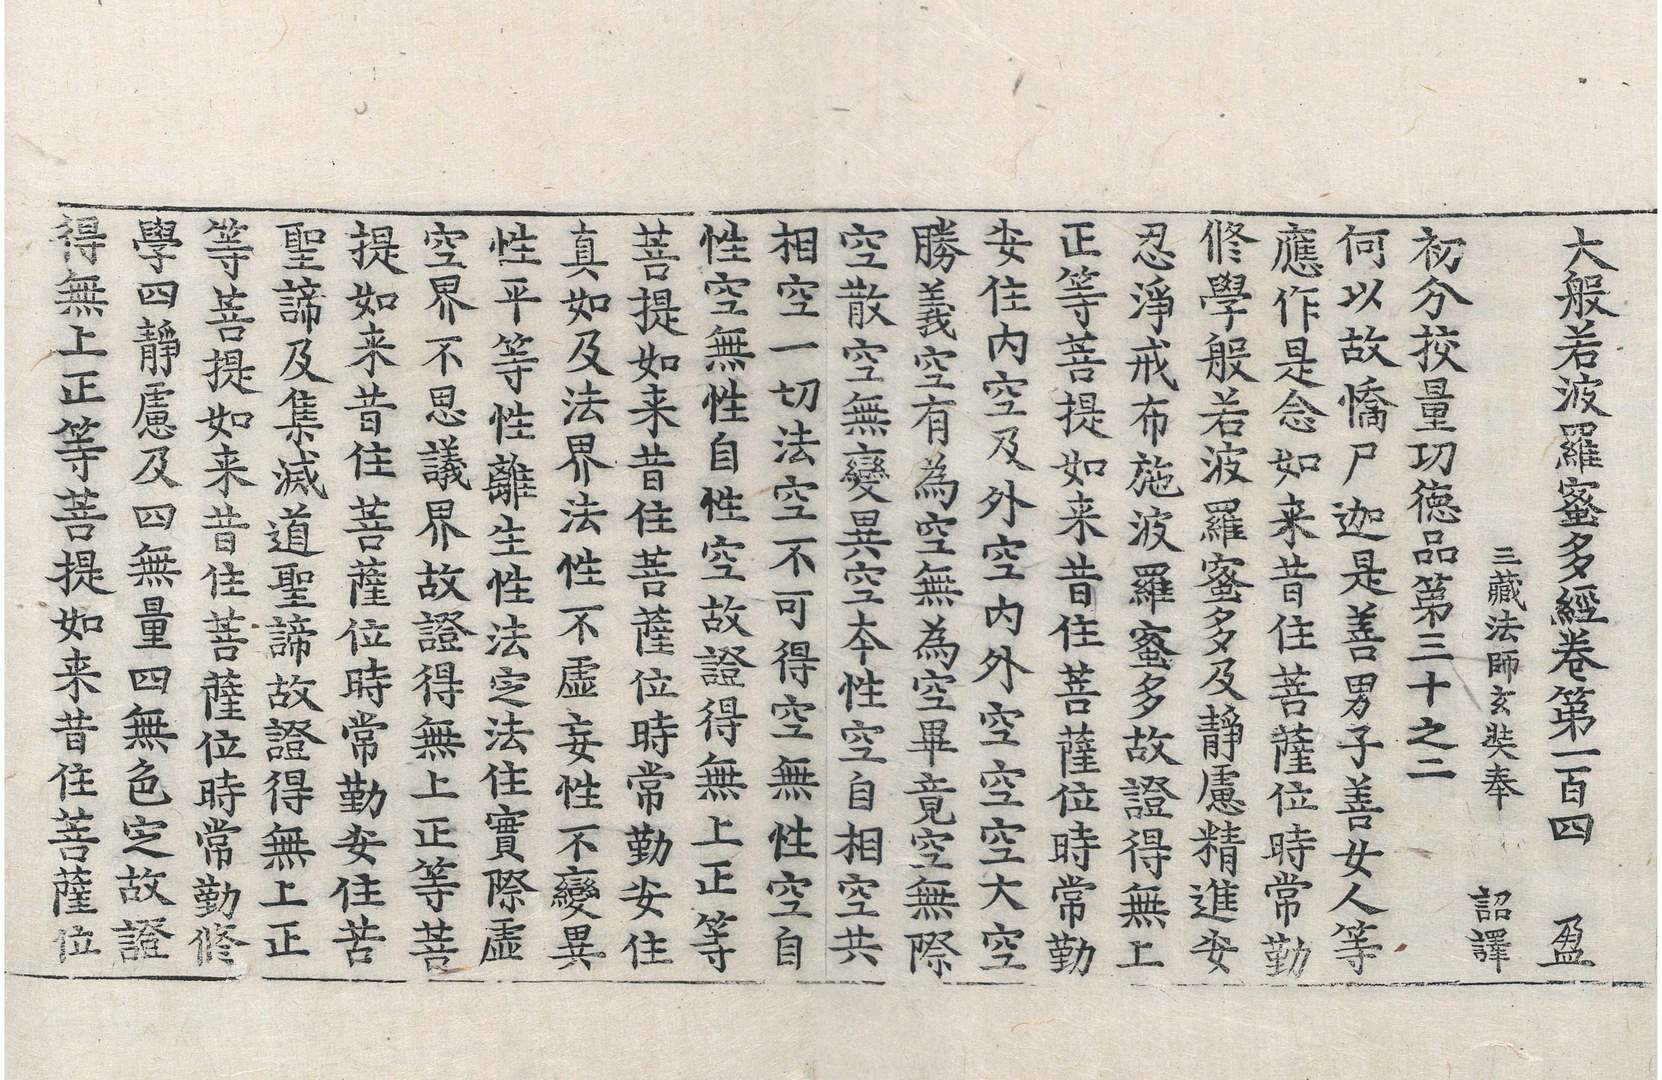 大般若波羅蜜多經卷第一百四　盈
三藏法師玄奘奉　詔譯
初分挍量功德品第三十之二
何以故憍尸迦是善男子善女人等
應作是念如来昔住菩薩位時常勤
修學般若波羅蜜多及靜慮精進安
忍淨戒布施波羅蜜多故證得無上
正等菩提如来昔住菩薩位時常勤
安住內空及外空內外空空空大空
勝義空有為空無為空畢竟空無際
空散空無變異空本性空自相空共
相空一切法空不可得空無性空自
性空無性自性空故證得無上正等
菩提如来昔住菩薩位時常勤安住
真如及法界法性不虛妄性不變異
性平等性離生性法定法住實際虛
空界不思議界故證得無上正等菩
提如来昔住菩薩位時常勤安住苦
聖諦及集滅道聖諦故證得無上正
等菩提如来昔住菩薩位時常勤修
學四靜慮及四無量四無色定故證
得無上正等菩提如来昔住菩薩位